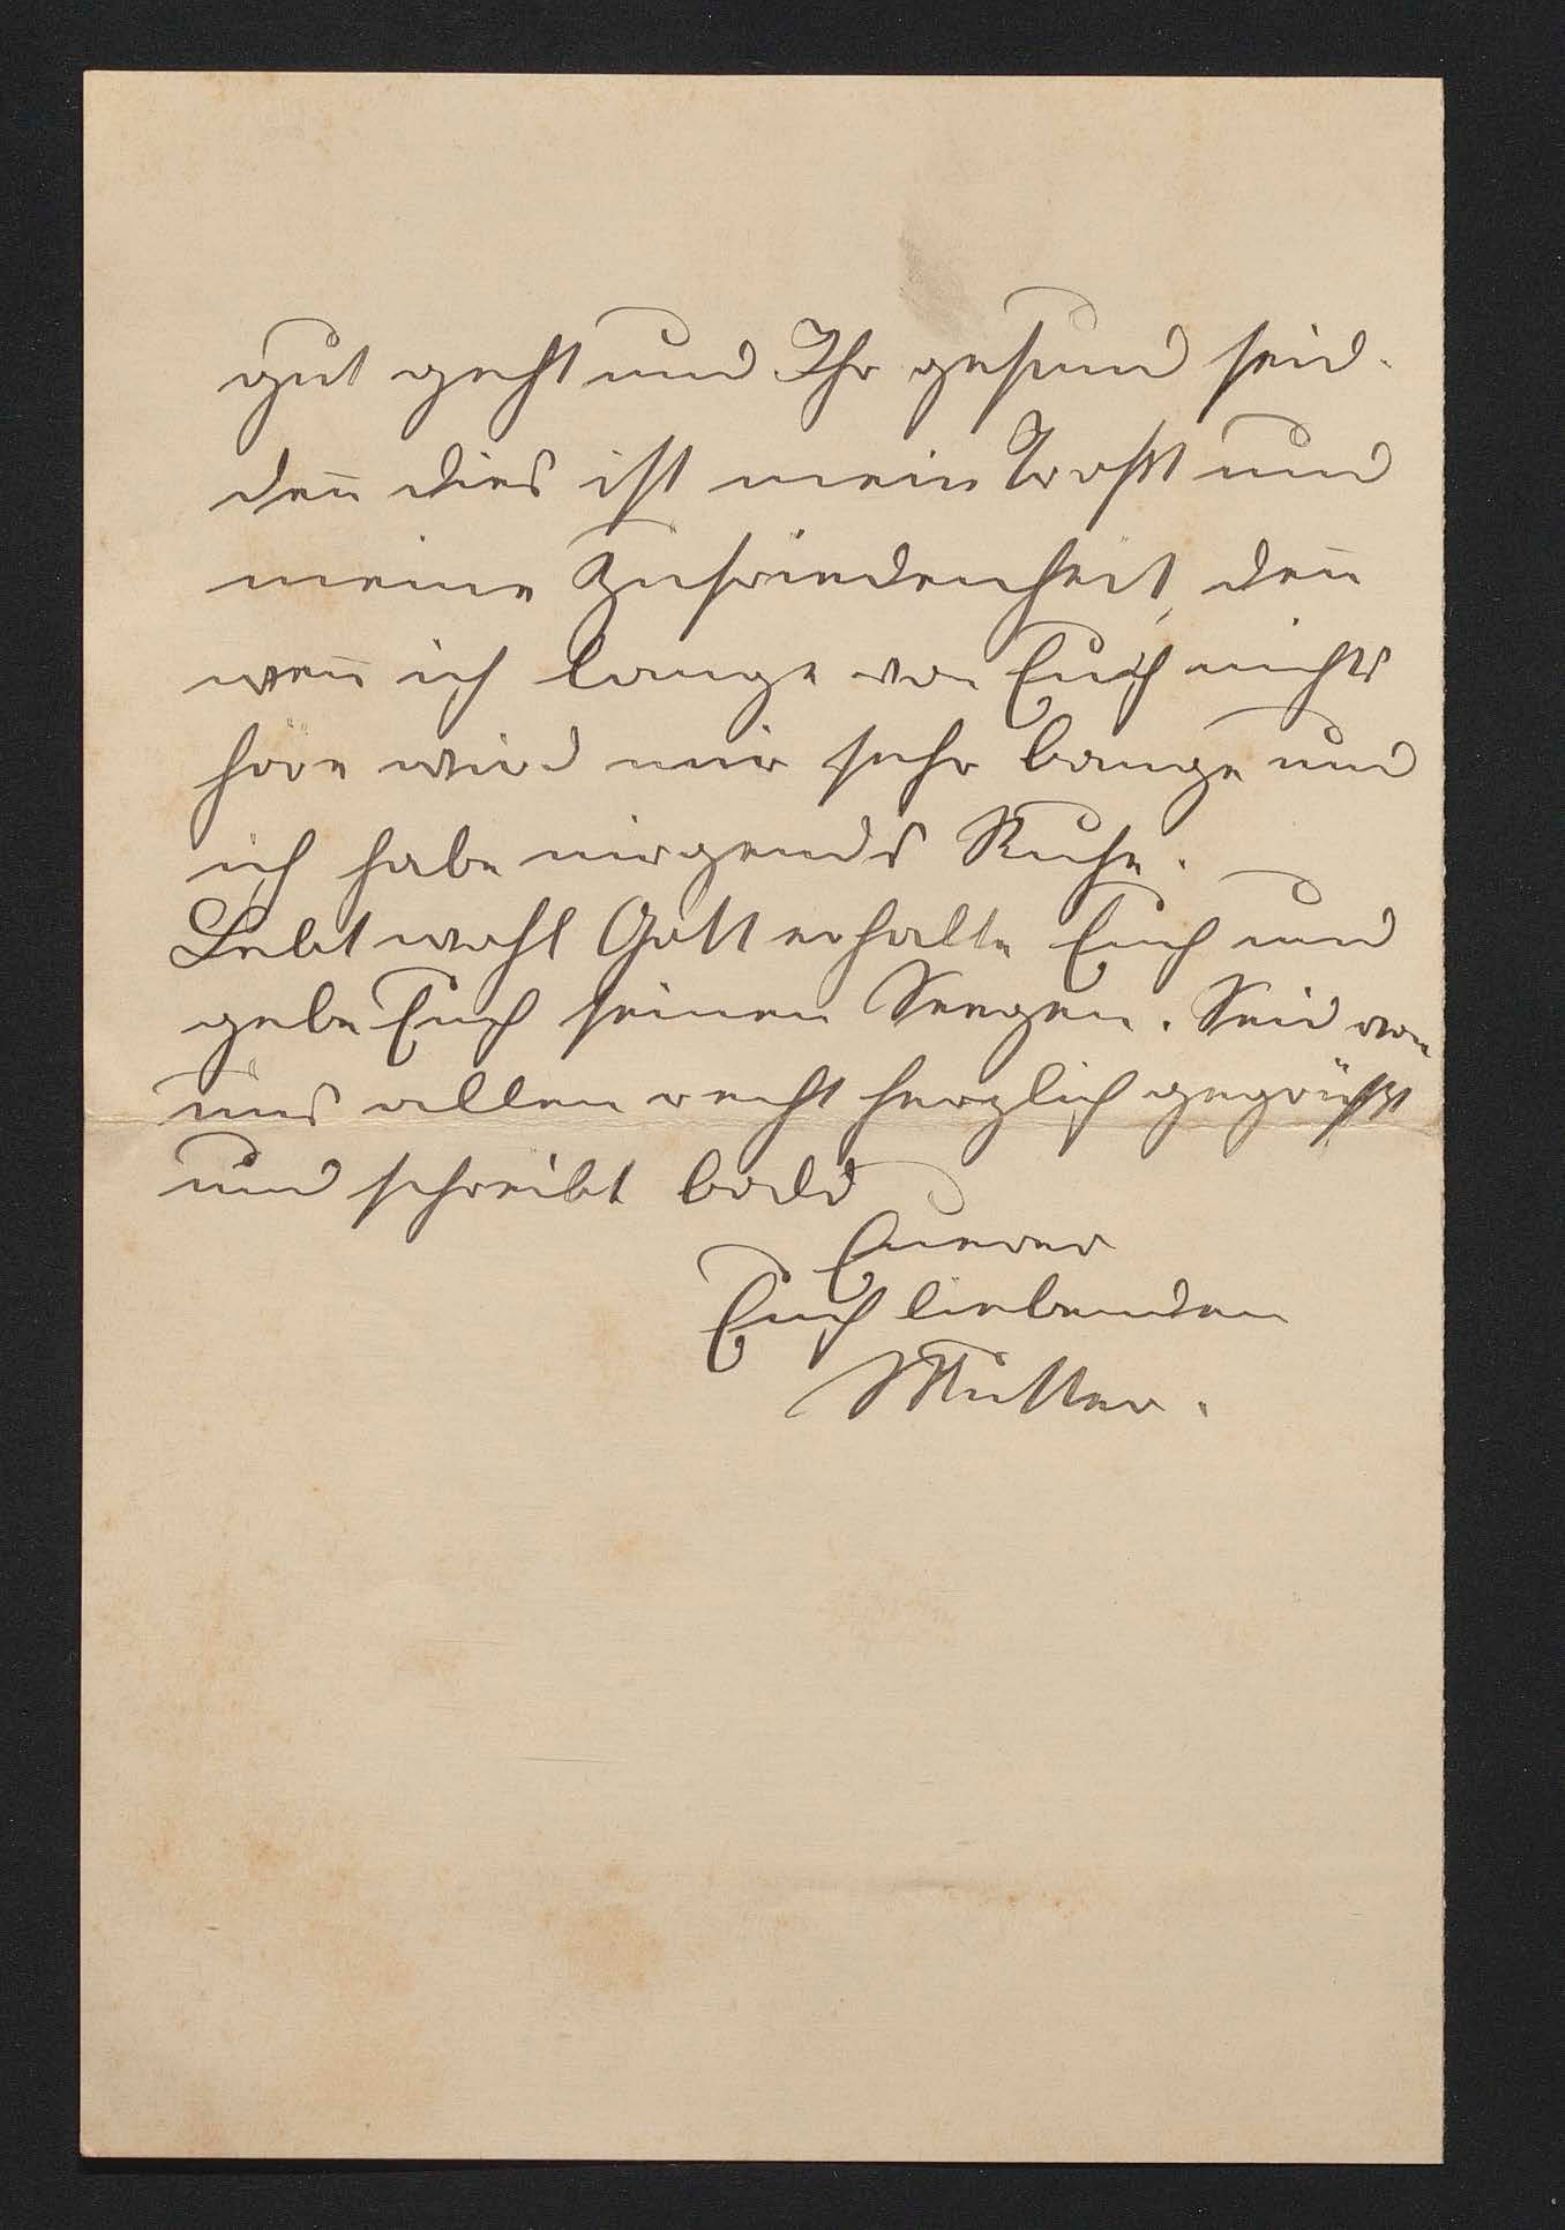 gut geht und Ihr gesund seid.
den̅ dies ist mein Trost und
meine Zufriedenheit, den̅
wen̅ ich lange von Euch nichts
höre wird mir sehr bange und
ich habe nirgends Ruhe.
Lebt wohl Gott erhalte Euch und
gebe Euch seinen Seegen. Seid von
uns allen recht herzlich gegrüßt
und schreibt bald
Euerer
Euch liebenden
Mutter.